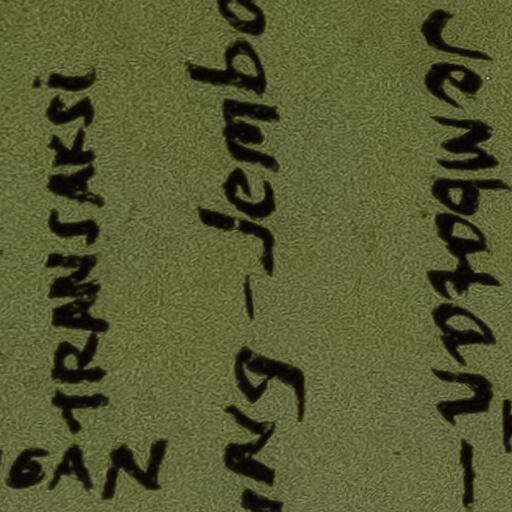 TRANSAKSi
GAN
NG - Jembo
Jembatan -